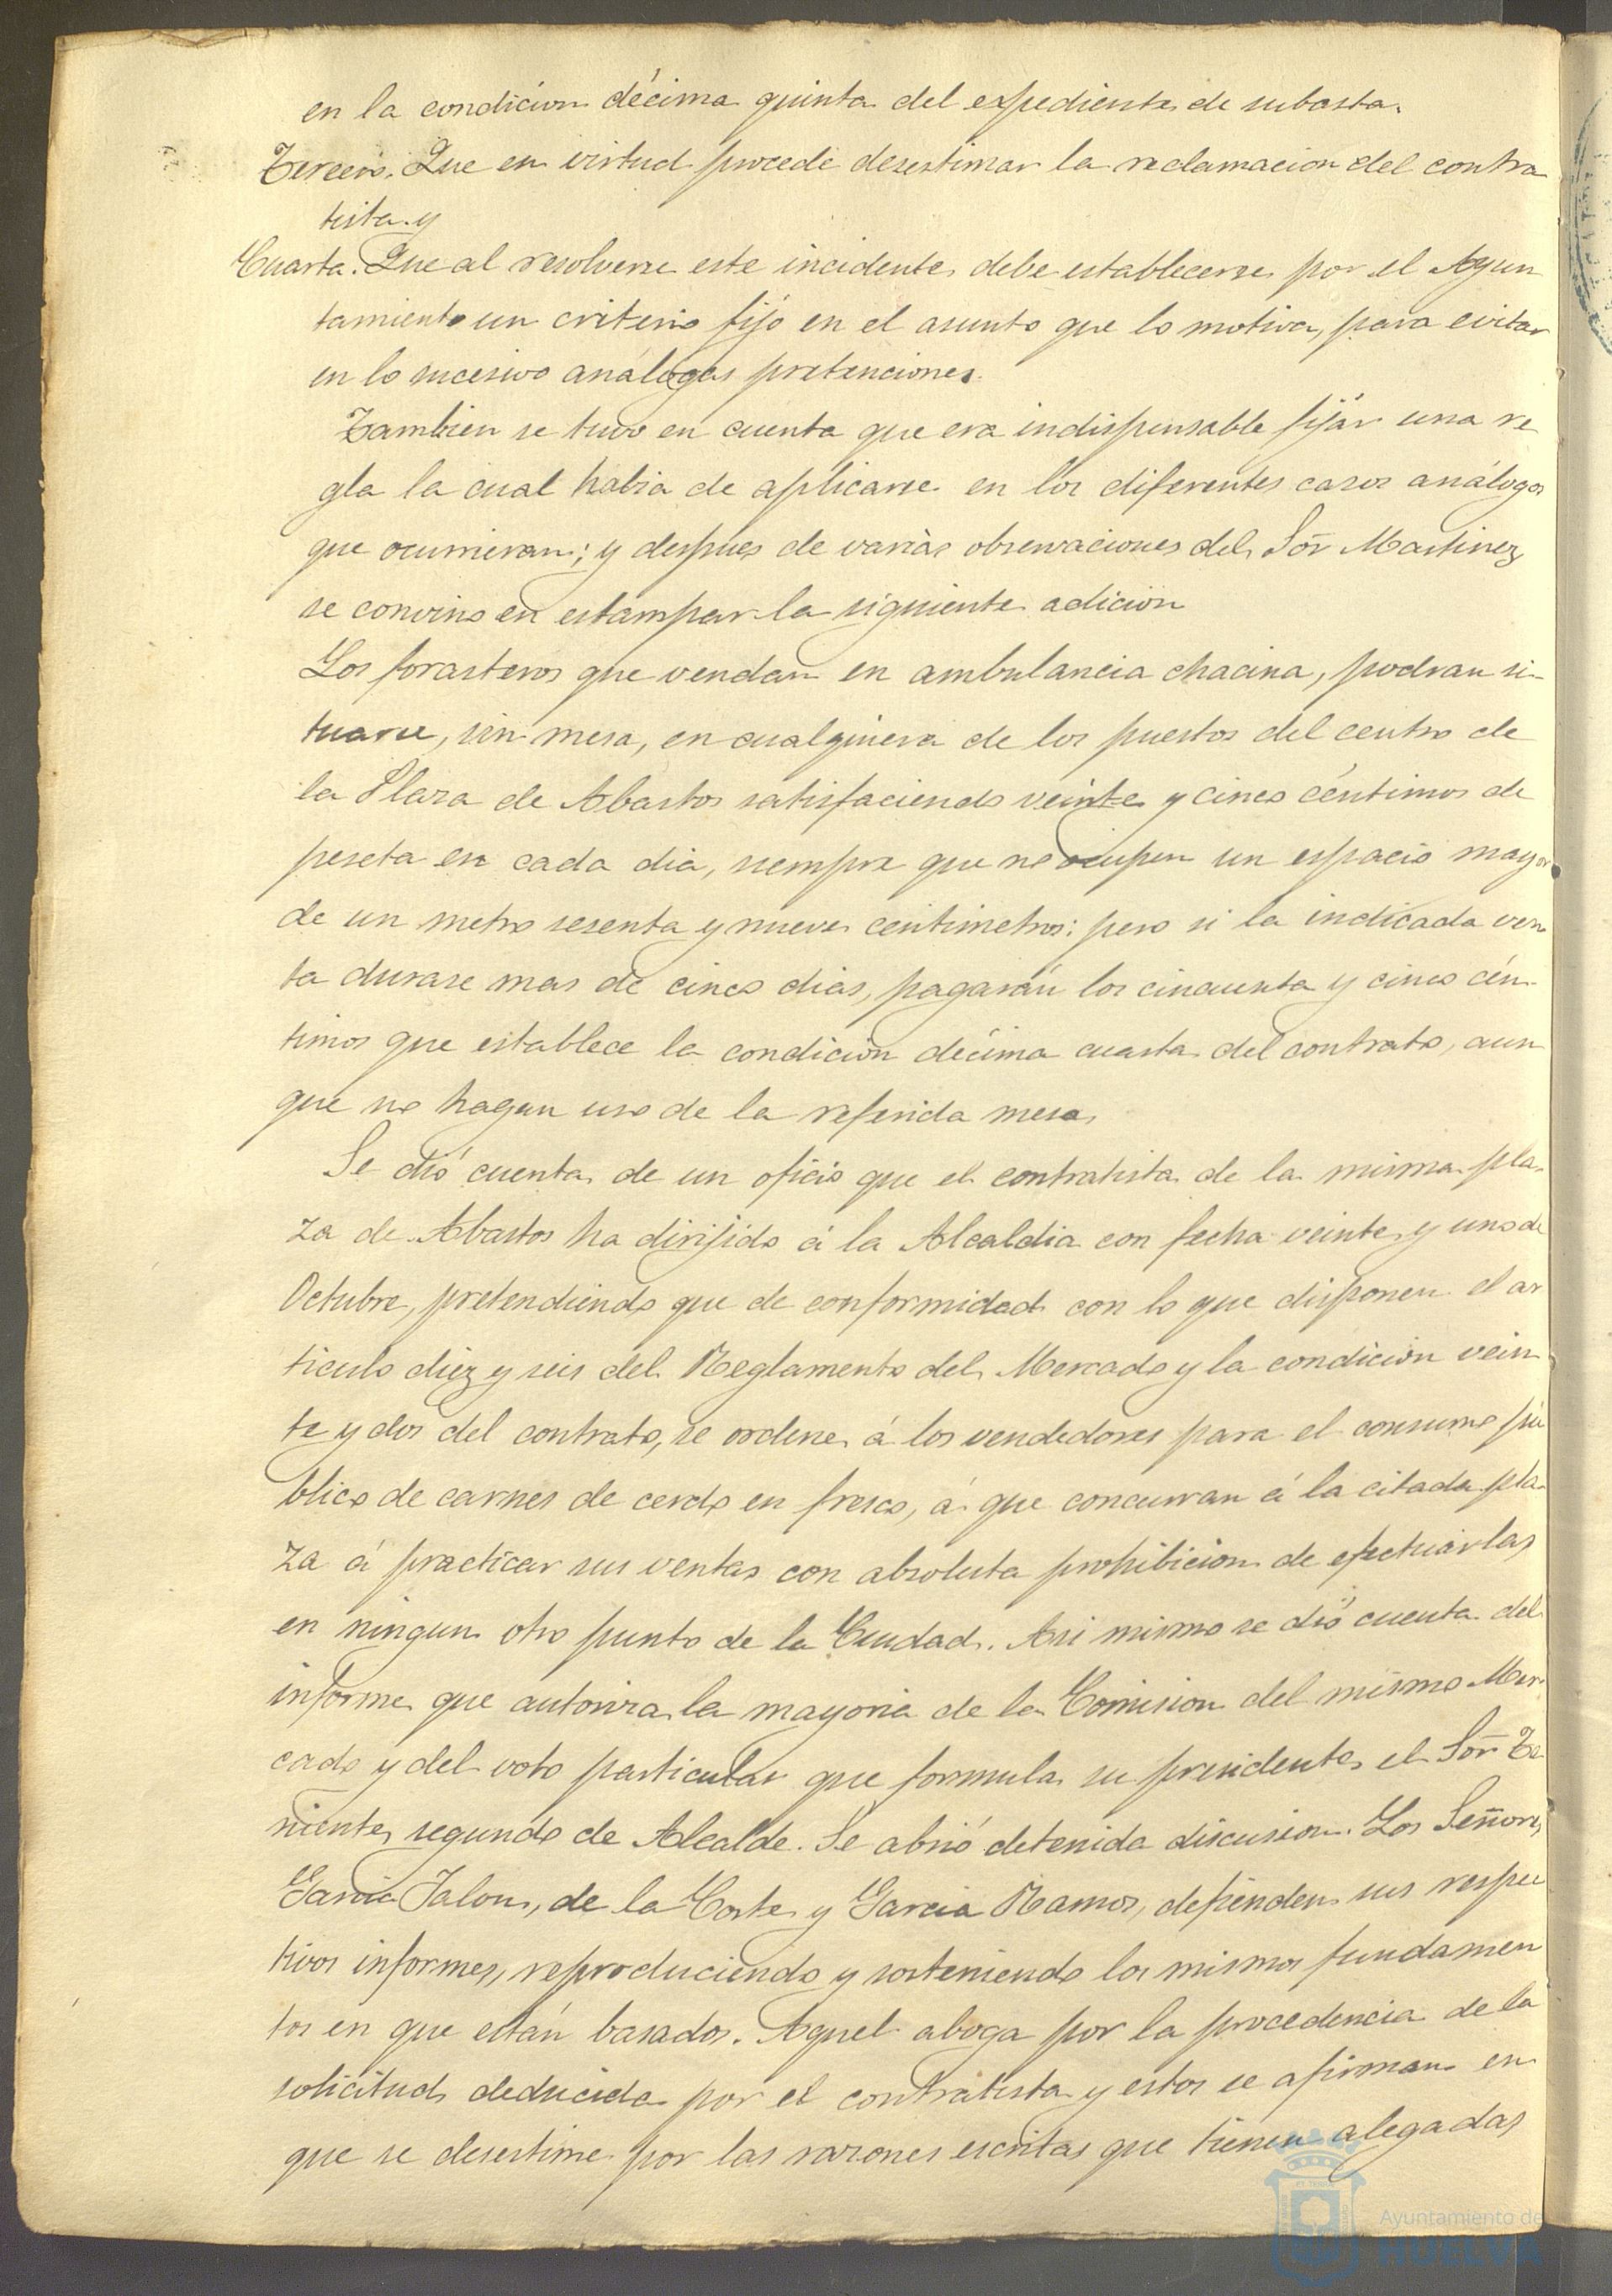 en la condicion décima quinta del expediente de subasta.
Tercero. Que en virtud procede desestimar la reclamacion del contra
tista y
Cuarta. Que al resolverse este incidente, debe establecerse por el Ayun
tamiento un criterio fijo en el asunto que lo motiva, para evitar
en lo sucesivo análogas pretenciones.
Tambien se tuvo en cuenta que era indispensable fijar una re
gla la cual habia de aplicarse en los diferentes casos análogos
que ocurrieran; y despues de varias observaciones del Sor Martinez
se convino en estampar la siguiente adicion
Los forasteros que vendan en ambulancia chacina, podran si-
tuarse, sin mesa, en cualquiera de los puestos del centro de
la Plaza de Abastos satisfaciendo veinte y cinco céntimos de
peseta en cada dia, siempre que no ocupen un espacio mayor
de un metro sesenta y nueve centimetros: pero si la indicada ven
ta durase mas de cinco dias, pagarán los cincuenta y cinco cén-
timos que establece la condicion décima cuarta del contrato, aun
que no hagan uso de la referida mesa.
Se dió cuenta de un oficio que el contratista de la misma pla-
za de Abastos ha dirijido á la Alcaldia con fecha veinte y uno de
Octubre, pretendiendo que de conformidad con lo que disponen el ar
ticulo diez y seis del Reglamento del Mercado y la condicion vein
te y dos del contrato, se ordene á los vendedores para el consumo pú
blico de carnes de cerdo en fresco, á que concurran á la citada pla-
za á practicar sus ventas con absoluta prohibicion de efectuarlas
en ningun otro punto de la Ciudad. Asi mismo se dió cuenta del
informe que autoriza la mayoria de la Comision del mismo Mer-
cado y del voto particular que formula su presidente el Sor Te
niente segundo de Alcalde. Se abrió detenida discusion. Los Señores
Garcia Jalon, de la Corte y Garcia Ramos, defienden sus respec
tivos informes, reproduciendo y sosteniendo los mismos fundamen
tos en que están basados. Aquel aboga por la procedencia de la
solicitud deducida por el contratista y estos se afirman en
que se desestime por las razones escritas que tienen alegadas
Ayuntamiento de
HUELVA